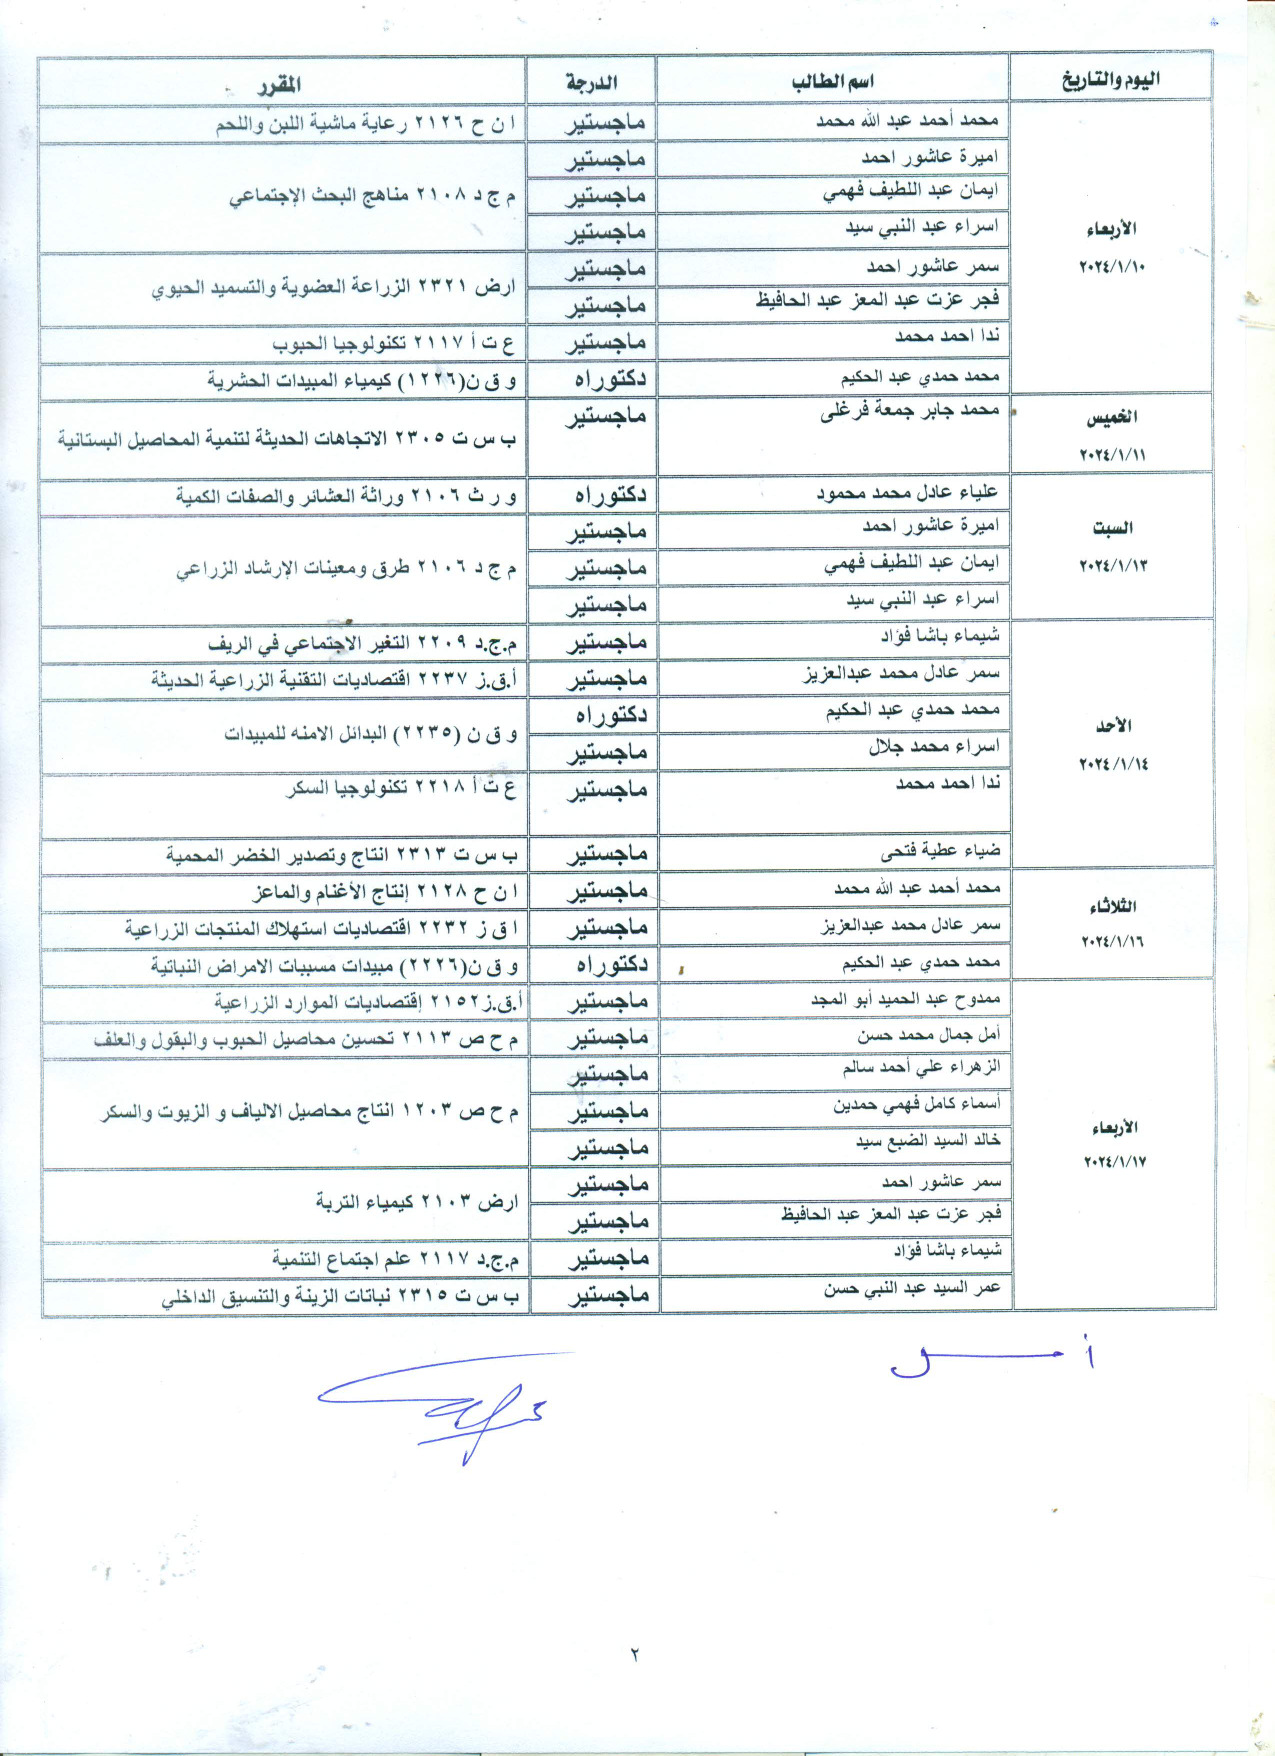 اليوم والتاريخ اسم الطالب الدرجة المقرر
الأربعاء
٢٠٢٤/١/١٠
محمد أحمد عبد الله محمد ماجستير ا ن ح ٢١٢٦ رعاية ماشية اللبن واللحم
اميرة عاشور احمد ماجستير
ايمان عبد اللطيف فهمي ماجستير م ج د ٢١٠٨ مناهج البحث الإجتماعي
اسراء عبد النبي سيد ماجستير
سمر عاشور احمد ماجستير ارض ٢٣٢١ الزراعة العضوية والتسميد الحيوي
فجر عزت عبد المعز عبد الحافيظ ماجستير
ندا احمد محمد ماجستير ع ت أ ٢١١٧ تكنولوجيا الحبوب
محمد حمدي عبد الحكيم دكتوراه و ق ن(١٢٢٦) كيمياء المبيدات الحشرية
الخميس
٢٠٢٤/١/١١
محمد جابر جمعة فرغلى ماجستير ب س ت ٢٣٠٥ الاتجاهات الحديثة لتنمية المحاصيل البستانية
السبت
٢٠٢٤/١/١٣
علياء عادل محمد محمود دكتوراه و ر ث ٢١٠٦ وراثة العشائر والصفات الكمية
اميرة عاشور احمد ماجستير
ايمان عبد اللطيف فهمي ماجستير م ج د ٢١٠٦ طرق ومعينات الإرشاد الزراعي
اسراء عبد النبي سيد ماجستير
الأحد
٢٠٢٤/١/١٤
شيماء باشا فؤاد ماجستير م.ج.د ٢٢٠٩ التغير الاجتماعي في الريف
سمر عادل محمد عبدالعزيز ماجستير أ.ق.ز ٢٢٣٧ اقتصاديات التقنية الزراعية الحديثة
محمد حمدي عبد الحكيم دكتوراه و ق ن (٢٢٣٥) البدائل الامنه للمبيدات
اسراء محمد جلال ماجستير
ندا احمد محمد ماجستير ع ت أ ٢٢١٨ تكنولوجيا السكر
ضياء عطية فتحى ماجستير ب س ت ٢٣١٣ انتاج وتصدير الخضر المحمية
الثلاثاء
٢٠٢٤/١/١٦
محمد أحمد عبد الله محمد ماجستير ا ن ح ٢١٢٨ إنتاج الأغنام والماعز
سمر عادل محمد عبدالعزيز ماجستير ا ق ز ٢٢٣٢ اقتصاديات استهلاك المنتجات الزراعية
محمد حمدي عبد الحكيم دكتوراه و ق ن(٢٢٢٦) مبيدات مسببات الامراض النباتية
الأربعاء
٢٠٢٤/١/١٧
ممدوح عبد الحميد أبو المجد ماجستير أ.ق.ز٢١٥٢ إقتصاديات الموارد الزراعية
أمل جمال محمد حسن ماجستير م ح ص ٢١١٣ تحسين محاصيل الحبوب والبقول والعلف
الزهراء علي أحمد سالم ماجستير
أسماء كامل فهمي حمدين ماجستير م ح ص ١٢٠٣ انتاج محاصيل الالياف و الزيوت والسكر
خالد السيد الضبع سيد ماجستير
سمر عاشور احمد ماجستير ارض ٢١٠٣ كيمياء التربة
فجر عزت عبد المعز عبد الحافيظ ماجستير
شيماء باشا فؤاد ماجستير م.ج.د ٢١١٧ علم اجتماع التنمية
عمر السيد عبد النبي حسن ماجستير ب س ت ٢٣١٥ نباتات الزينة والتنسيق الداخلي
٢